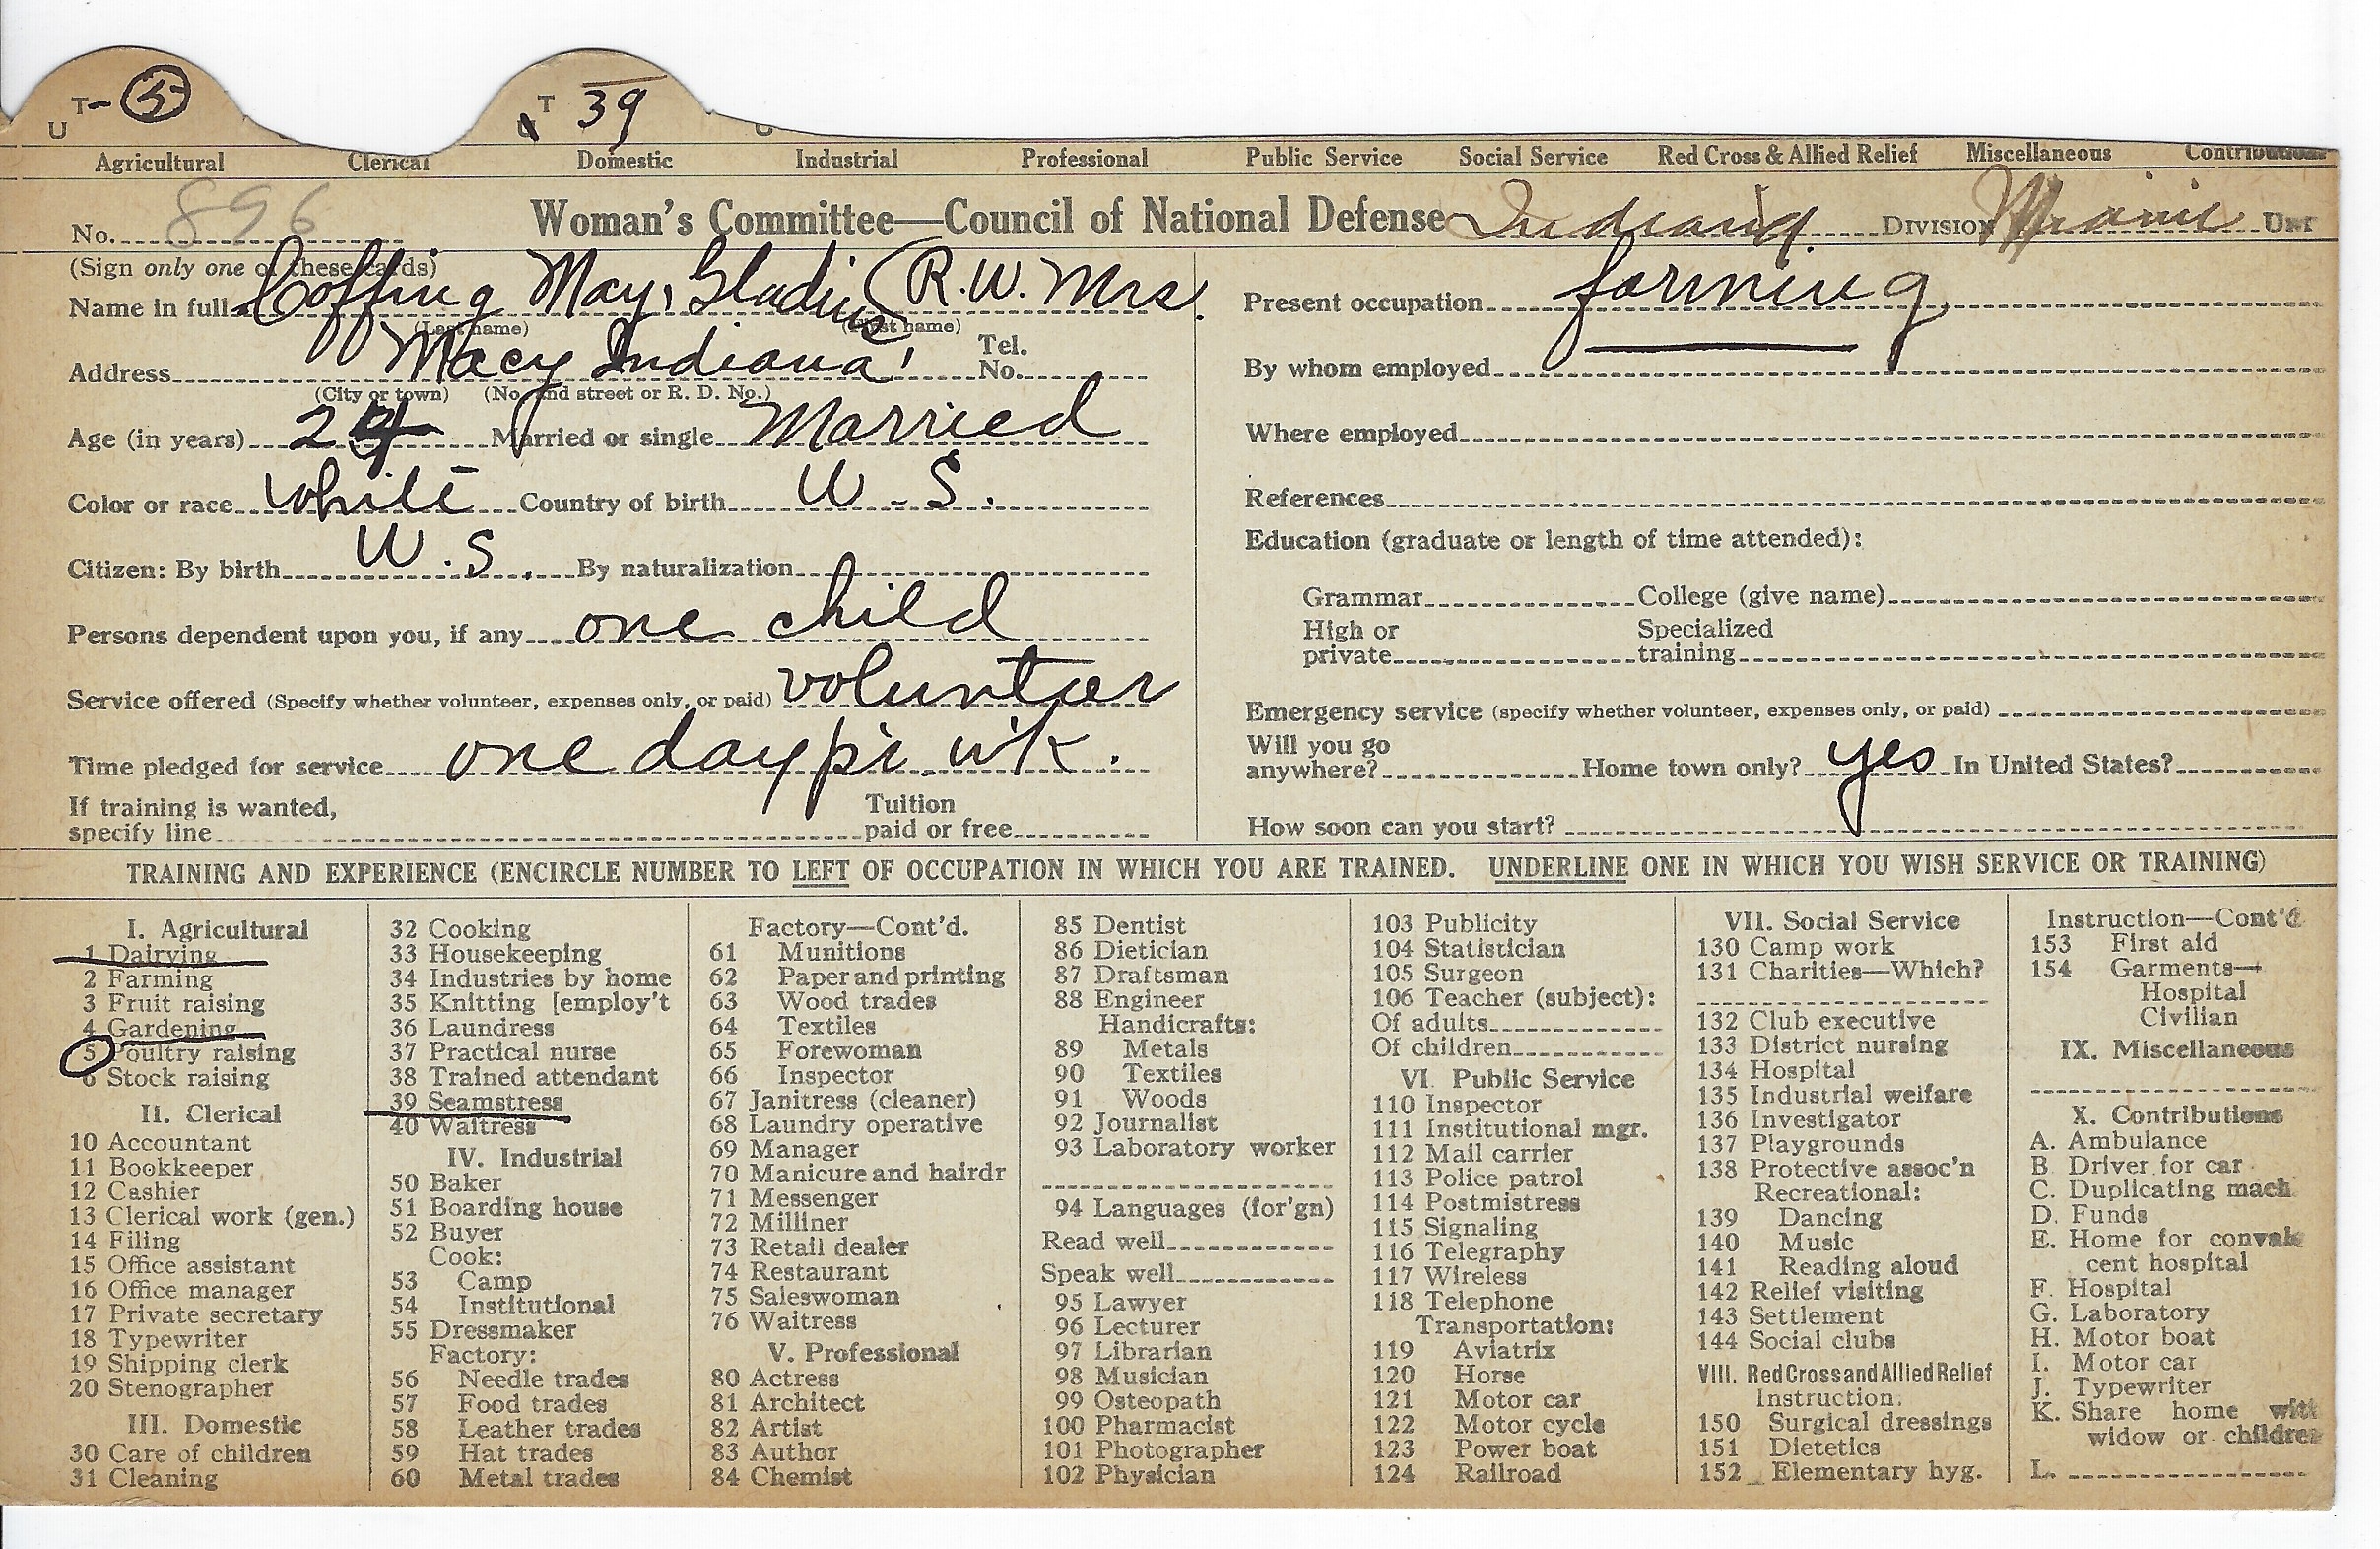 T- 5 T 39
U
Agricultural Clerical Domestic Industrial Professional Public Service Social Service Red Cross & Allied Relief Miscellaneous Contributions
No. 896 Woman's Committee—Council of National Defense Indiana Division Miami Unit
(Sign only one of these cards)
Name in full Coffing May, Gladius (R.W. Mrs.
(Last name) (First name)
Address Macy Indiana Tel. No.
(City or town) (No. and street or R. D. No.)
Age (in years) 24 Married or single Married
Color or race white Country of birth U.S.
Citizen: By birth U.S. By naturalization
Persons dependent upon you, if any one child
Service offered (Specify whether volunteer, expenses only, or paid) volunteer
Time pledged for service one day pr. wk.
If training is wanted,
specify line Tuition paid or free
Present occupation farming
By whom employed
Where employed
References
Education (graduate or length of time attended):
Grammar College (give name)
High or private Specialized training
Emergency service (specify whether volunteer, expenses only, or paid)
Will you go anywhere? Home town only? yes In United States?
How soon can you start?
TRAINING AND EXPERIENCE (ENCIRCLE NUMBER TO LEFT OF OCCUPATION IN WHICH YOU ARE TRAINED. UNDERLINE ONE IN WHICH YOU WISH SERVICE OR TRAINING)
I. Agricultural
1 Dairying
2 Farming
3 Fruit raising
4 Gardening
5 Poultry raising
6 Stock raising
II. Clerical
10 Accountant
11 Bookkeeper
12 Cashier
13 Clerical work (gen.)
14 Filing
15 Office assistant
16 Office manager
17 Private secretary
18 Typewriter
19 Shipping clerk
20 Stenographer
III. Domestic
30 Care of children
31 Cleaning
32 Cooking
33 Housekeeping
34 Industries by home
35 Knitting [employ't
36 Laundress
37 Practical nurse
38 Trained attendant
39 Seamstress
40 Waitress
IV. Industrial
50 Baker
51 Boarding house
52 Buyer
Cook:
53 Camp
54 Institutional
55 Dressmaker
Factory:
56 Needle trades
57 Food trades
58 Leather trades
59 Hat trades
60 Metal trades
Factory—Cont'd.
61 Munitions
62 Paper and printing
63 Wood trades
64 Textiles
65 Forewoman
66 Inspector
67 Janitress (cleaner)
68 Laundry operative
69 Manager
70 Manicure and hairdr
71 Messenger
72 Milliner
73 Retail dealer
74 Restaurant
75 Saleswoman
76 Waitress
V. Professional
80 Actress
81 Architect
82 Artist
83 Author
84 Chemist
85 Dentist
86 Dietician
87 Draftsman
88 Engineer
Handicrafts:
89 Metals
90 Textiles
91 Woods
92 Journalist
93 Laboratory worker
94 Languages (for'gn)
Read well
Speak well
95 Lawyer
96 Lecturer
97 Librarian
98 Musician
99 Osteopath
100 Pharmacist
101 Photographer
102 Physician
103 Publicity
104 Statistician
105 Surgeon
106 Teacher (subject):
Of adults
Of children
VI. Public Service
110 Inspector
111 Institutional mgr.
112 Mail carrier
113 Police patrol
114 Postmistress
115 Signaling
116 Telegraphy
117 Wireless
118 Telephone
Transportation:
119 Aviatrix
120 Horse
121 Motor car
122 Motor cycle
123 Power boat
124 Railroad
VII. Social Service
130 Camp work
131 Charities—Which?
132 Club executive
133 District nursing
134 Hospital
135 Industrial welfare
136 Investigator
137 Playgrounds
138 Protective assoc'n
Recreational:
139 Dancing
140 Music
141 Reading aloud
142 Relief visiting
143 Settlement
144 Social clubs
VIII. Red Cross and Allied Relief
Instruction.
150 Surgical dressings
151 Dietetics
152 Elementary hyg.
Instruction—Cont'd
153 First aid
154 Garments—
Hospital
Civilian
IX. Miscellaneous
X. Contributions
A. Ambulance
B. Driver for car
C. Duplicating mach
D. Funds
E. Home for convales
cent hospital
F. Hospital
G. Laboratory
H. Motor boat
I. Motor car
J. Typewriter
K. Share home with
widow or children
L.